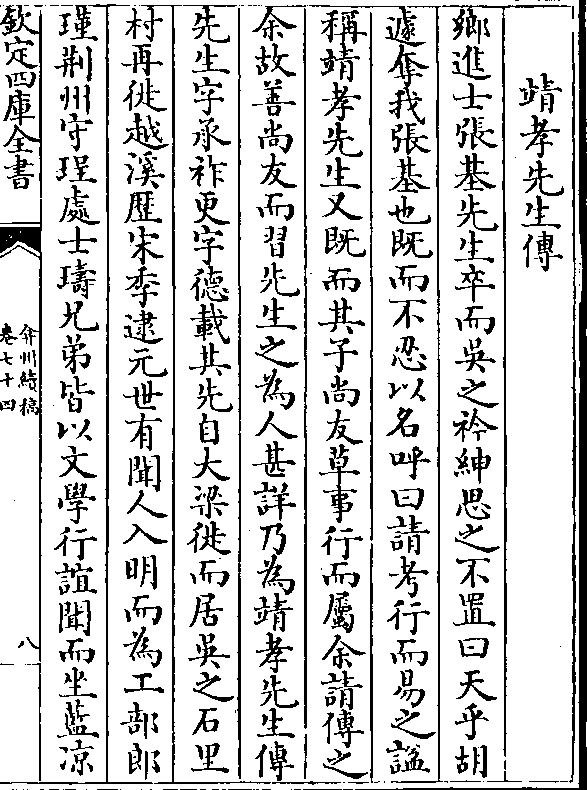 靖孝先生傳
鄉進士張基先生卒而吳之衿紳思之不置曰天乎胡
遽奪我張基也既而不忍以名呼曰請考行而易之謚
稱靖孝先生又既而其子尚友草事行而屬余請傳之
余故善尚友而習先生之為人甚詳乃為靖孝先生傳
先生字承祚更字德載其先自大梁徙而居吳之石里
村再徙越溪歷宋季逮元世有聞人入明而為工部郎
瑾荆州守珵處士璹兄弟皆以文學行誼聞而坐藍凉
欽定四庫全書
弇州續稿
卷七十四
八